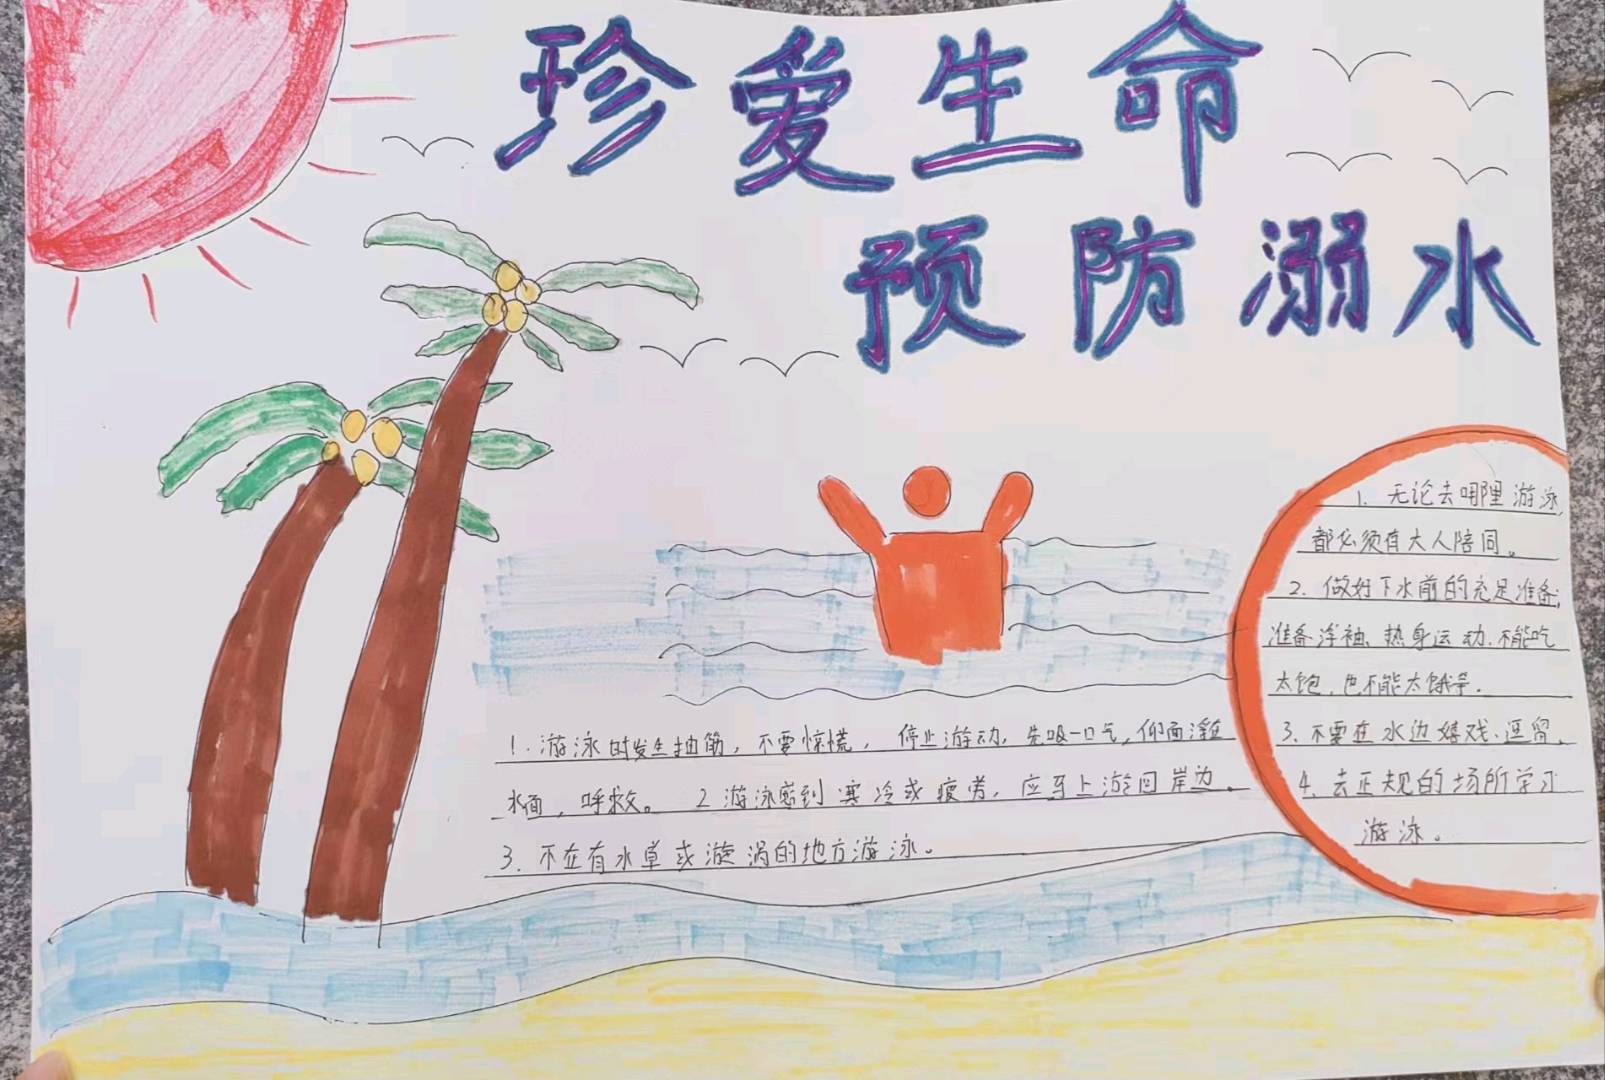 珍爱生命
预防溺水
1. 游泳时发生抽筋，不要惊慌，停止游动，先吸一口气，仰面浮在
水面，呼救。 2 游泳感到寒冷或疲劳，应马上游回岸边。
3. 不在有水草或漩涡的地方游泳。
1. 无论去哪里游泳，
都必须有大人陪同。
2. 做好下水前的充足准备，
准备浮袖、热身运动、不能吃
太饱，也不能太饿等。
3. 不要在水边嬉戏、逗留。
4. 去正规的场所学习
游泳。